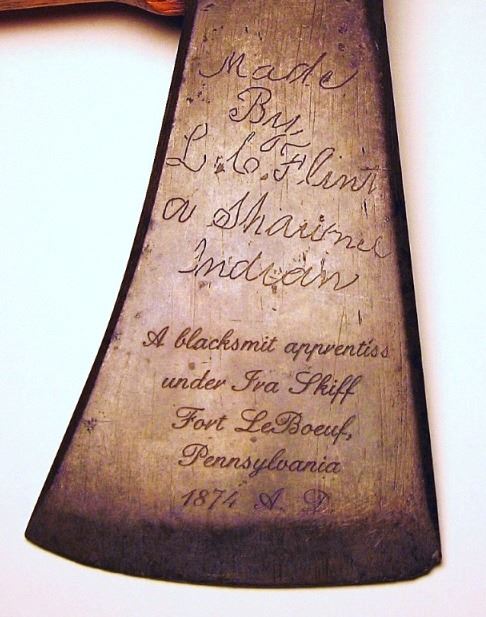 Made
By,
L. C. Flint
a Shawnee
Indian
A blacksmit apprentiss
under Ira Skiff
Fort LeBoeuf,
Pennsylvania
1874 A. D